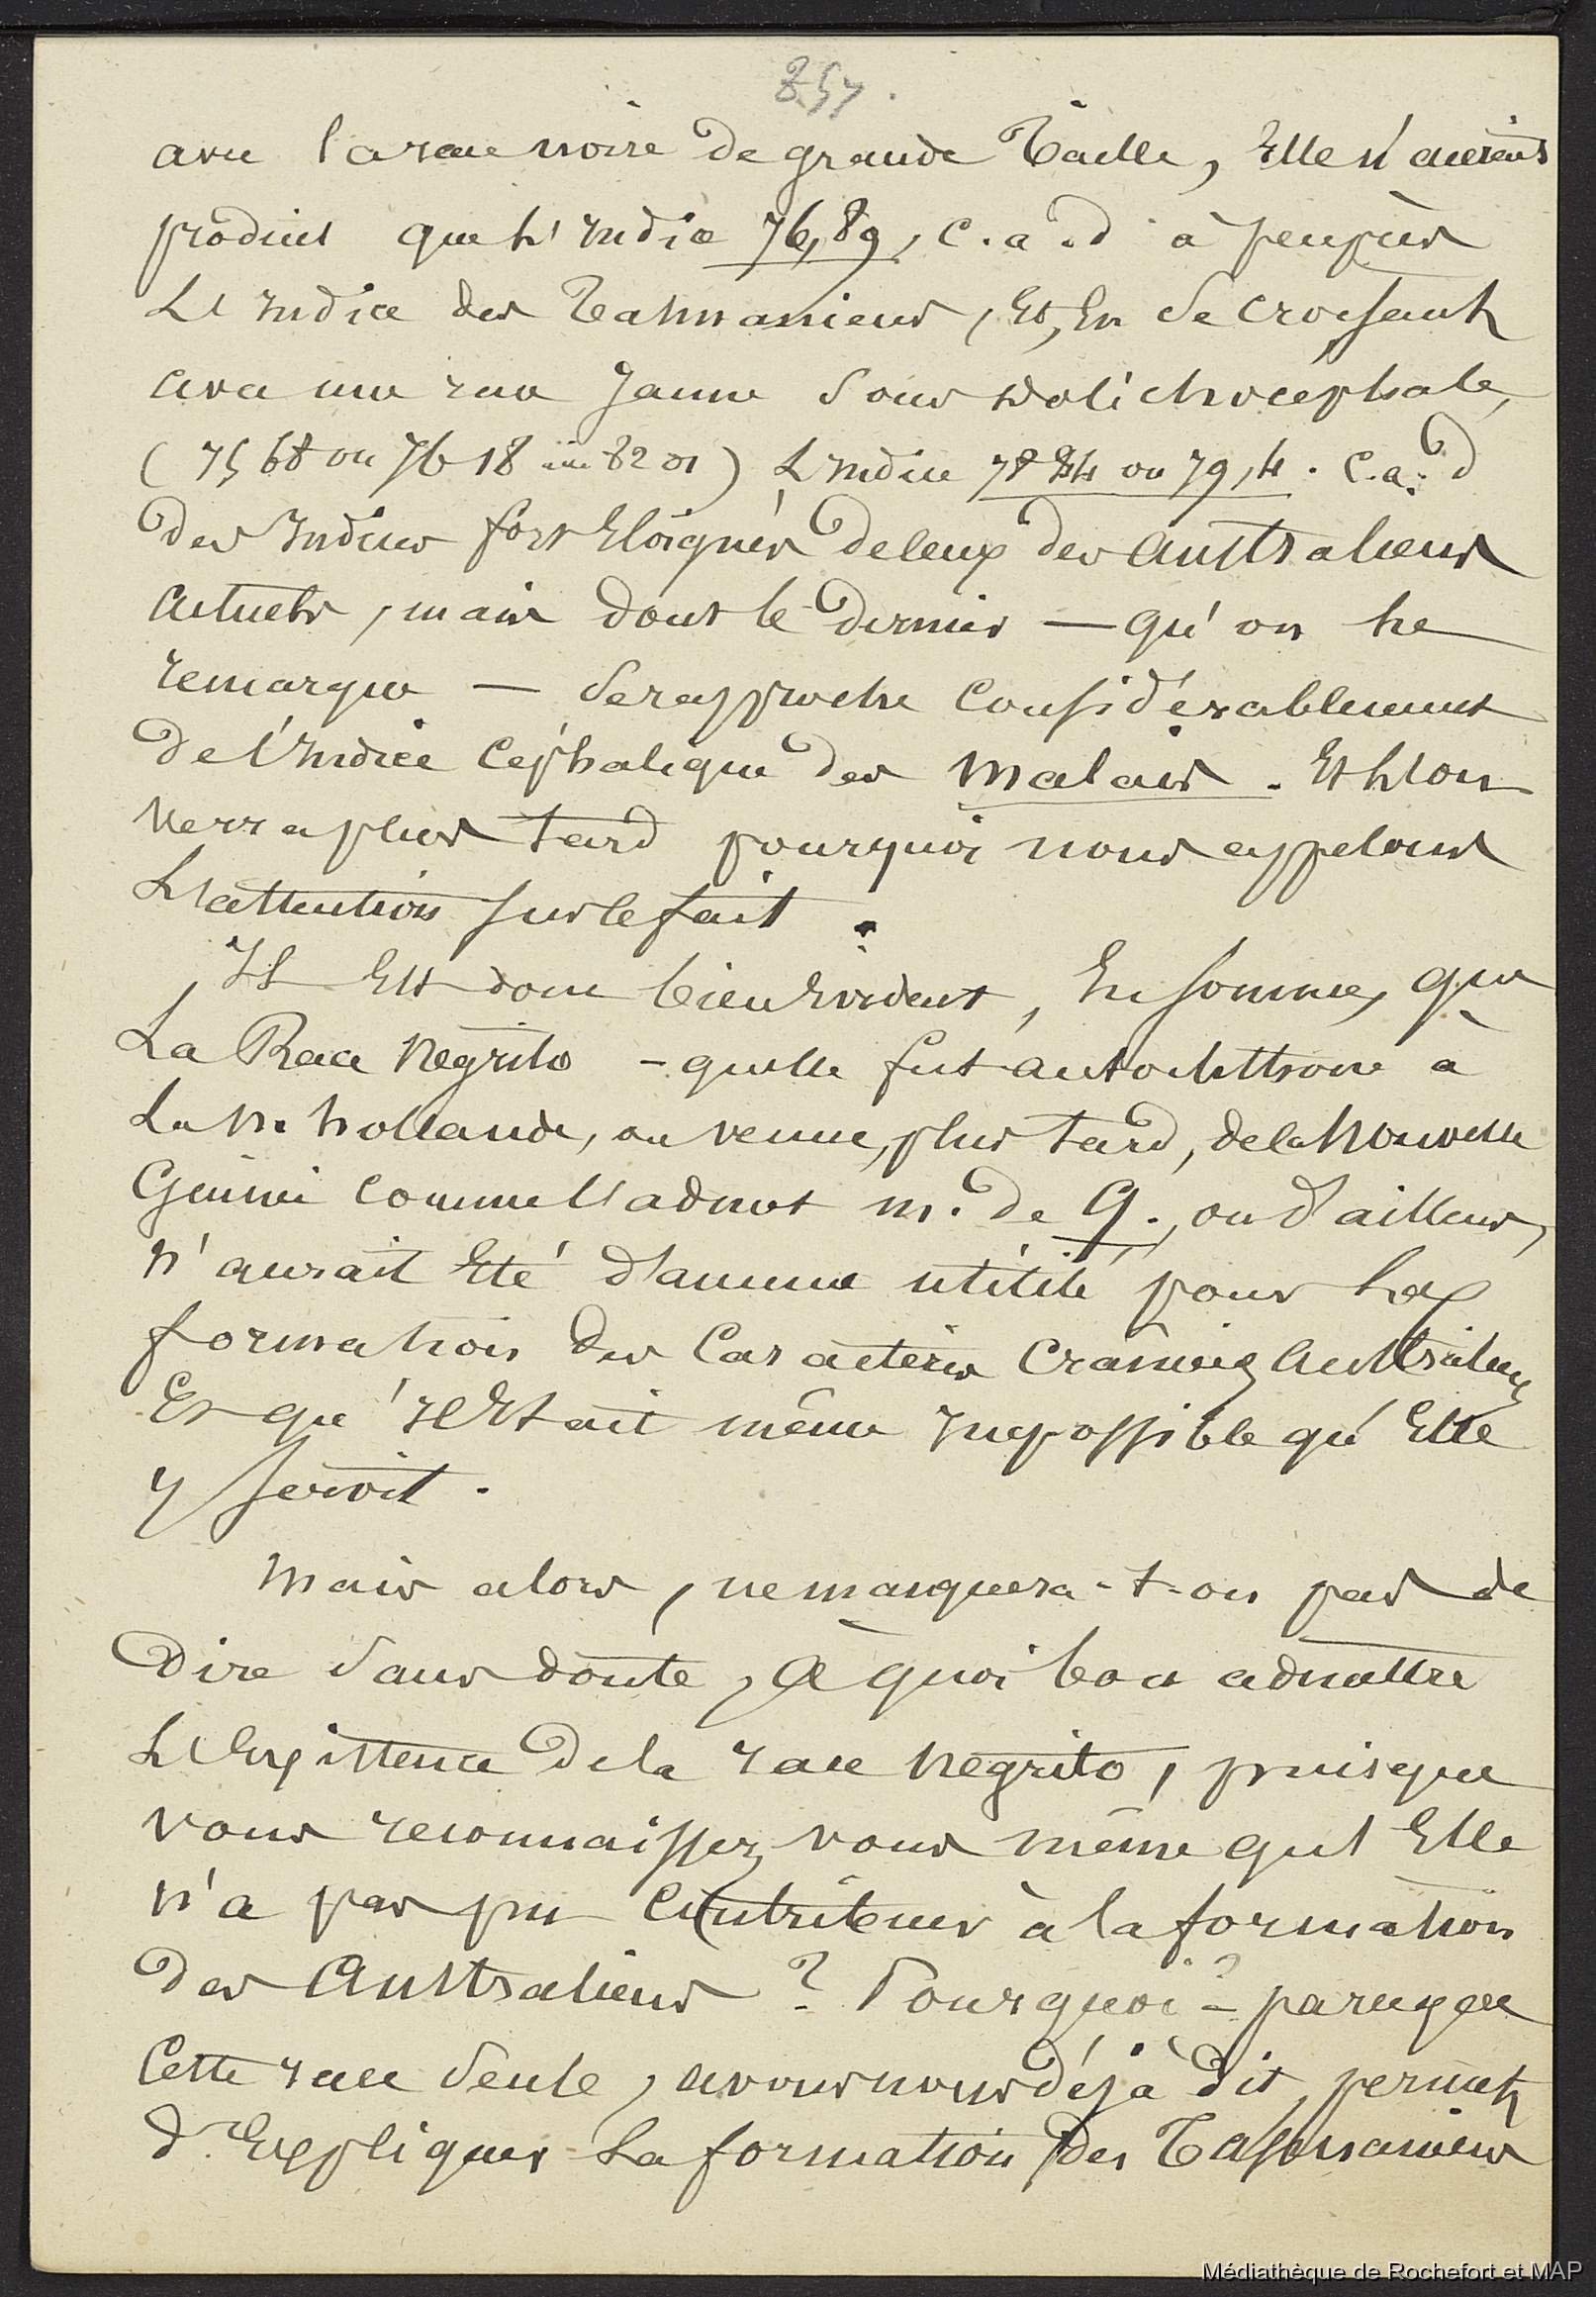 857.
avec la race noire de grande Taille, Elle n'aurait
produit que l'indice 76,89, c.a.d à peu près
L'indice des Tasmaniens, Et, En se croisant
avec une race Jaune sous dolichocéphale,
(75 68 ou 76 18 82 01) L'indice 78 84 ou 79,4. c.a.d
des Indices fort Eloignés de ceux des Australiens
actuels, mais dont le dernier — qu'on le
remarque — se rapproche considérablement
de l'Indice Céphalique des Malais. Et l'on
verra plus tard pourquoi nous appelons
L'attention sur le fait.
Il Est donc bien Evident, En somme, que
La Race Négrito - qu'elle fut autochthone à
La Nlle hollande, ou venue, plus tard, de la Nouvelle
Guinée comme l'admet M. de Q., ou d'ailleurs,
n'aurait Eté d'aucune utilité pour la
formation des Caractères Crâniens Australiens
Et qu'il Etait même Impossible qu'Elle
y servit.
Mais alors, ne manquera-t-on pas de
Dire sans doute, à quoi bon admettre
L'Existence de la race Négrito, puisque
vous reconnaissez vous même qu'Elle
n'a pas pu Contribuer à la formation
des Australiens ? Pourquoi - parceque
Cette race seule, avons nous déjà dit, permet
d'Expliquer la formation des Tasmaniens
Médiathèque de Rochefort et MAP